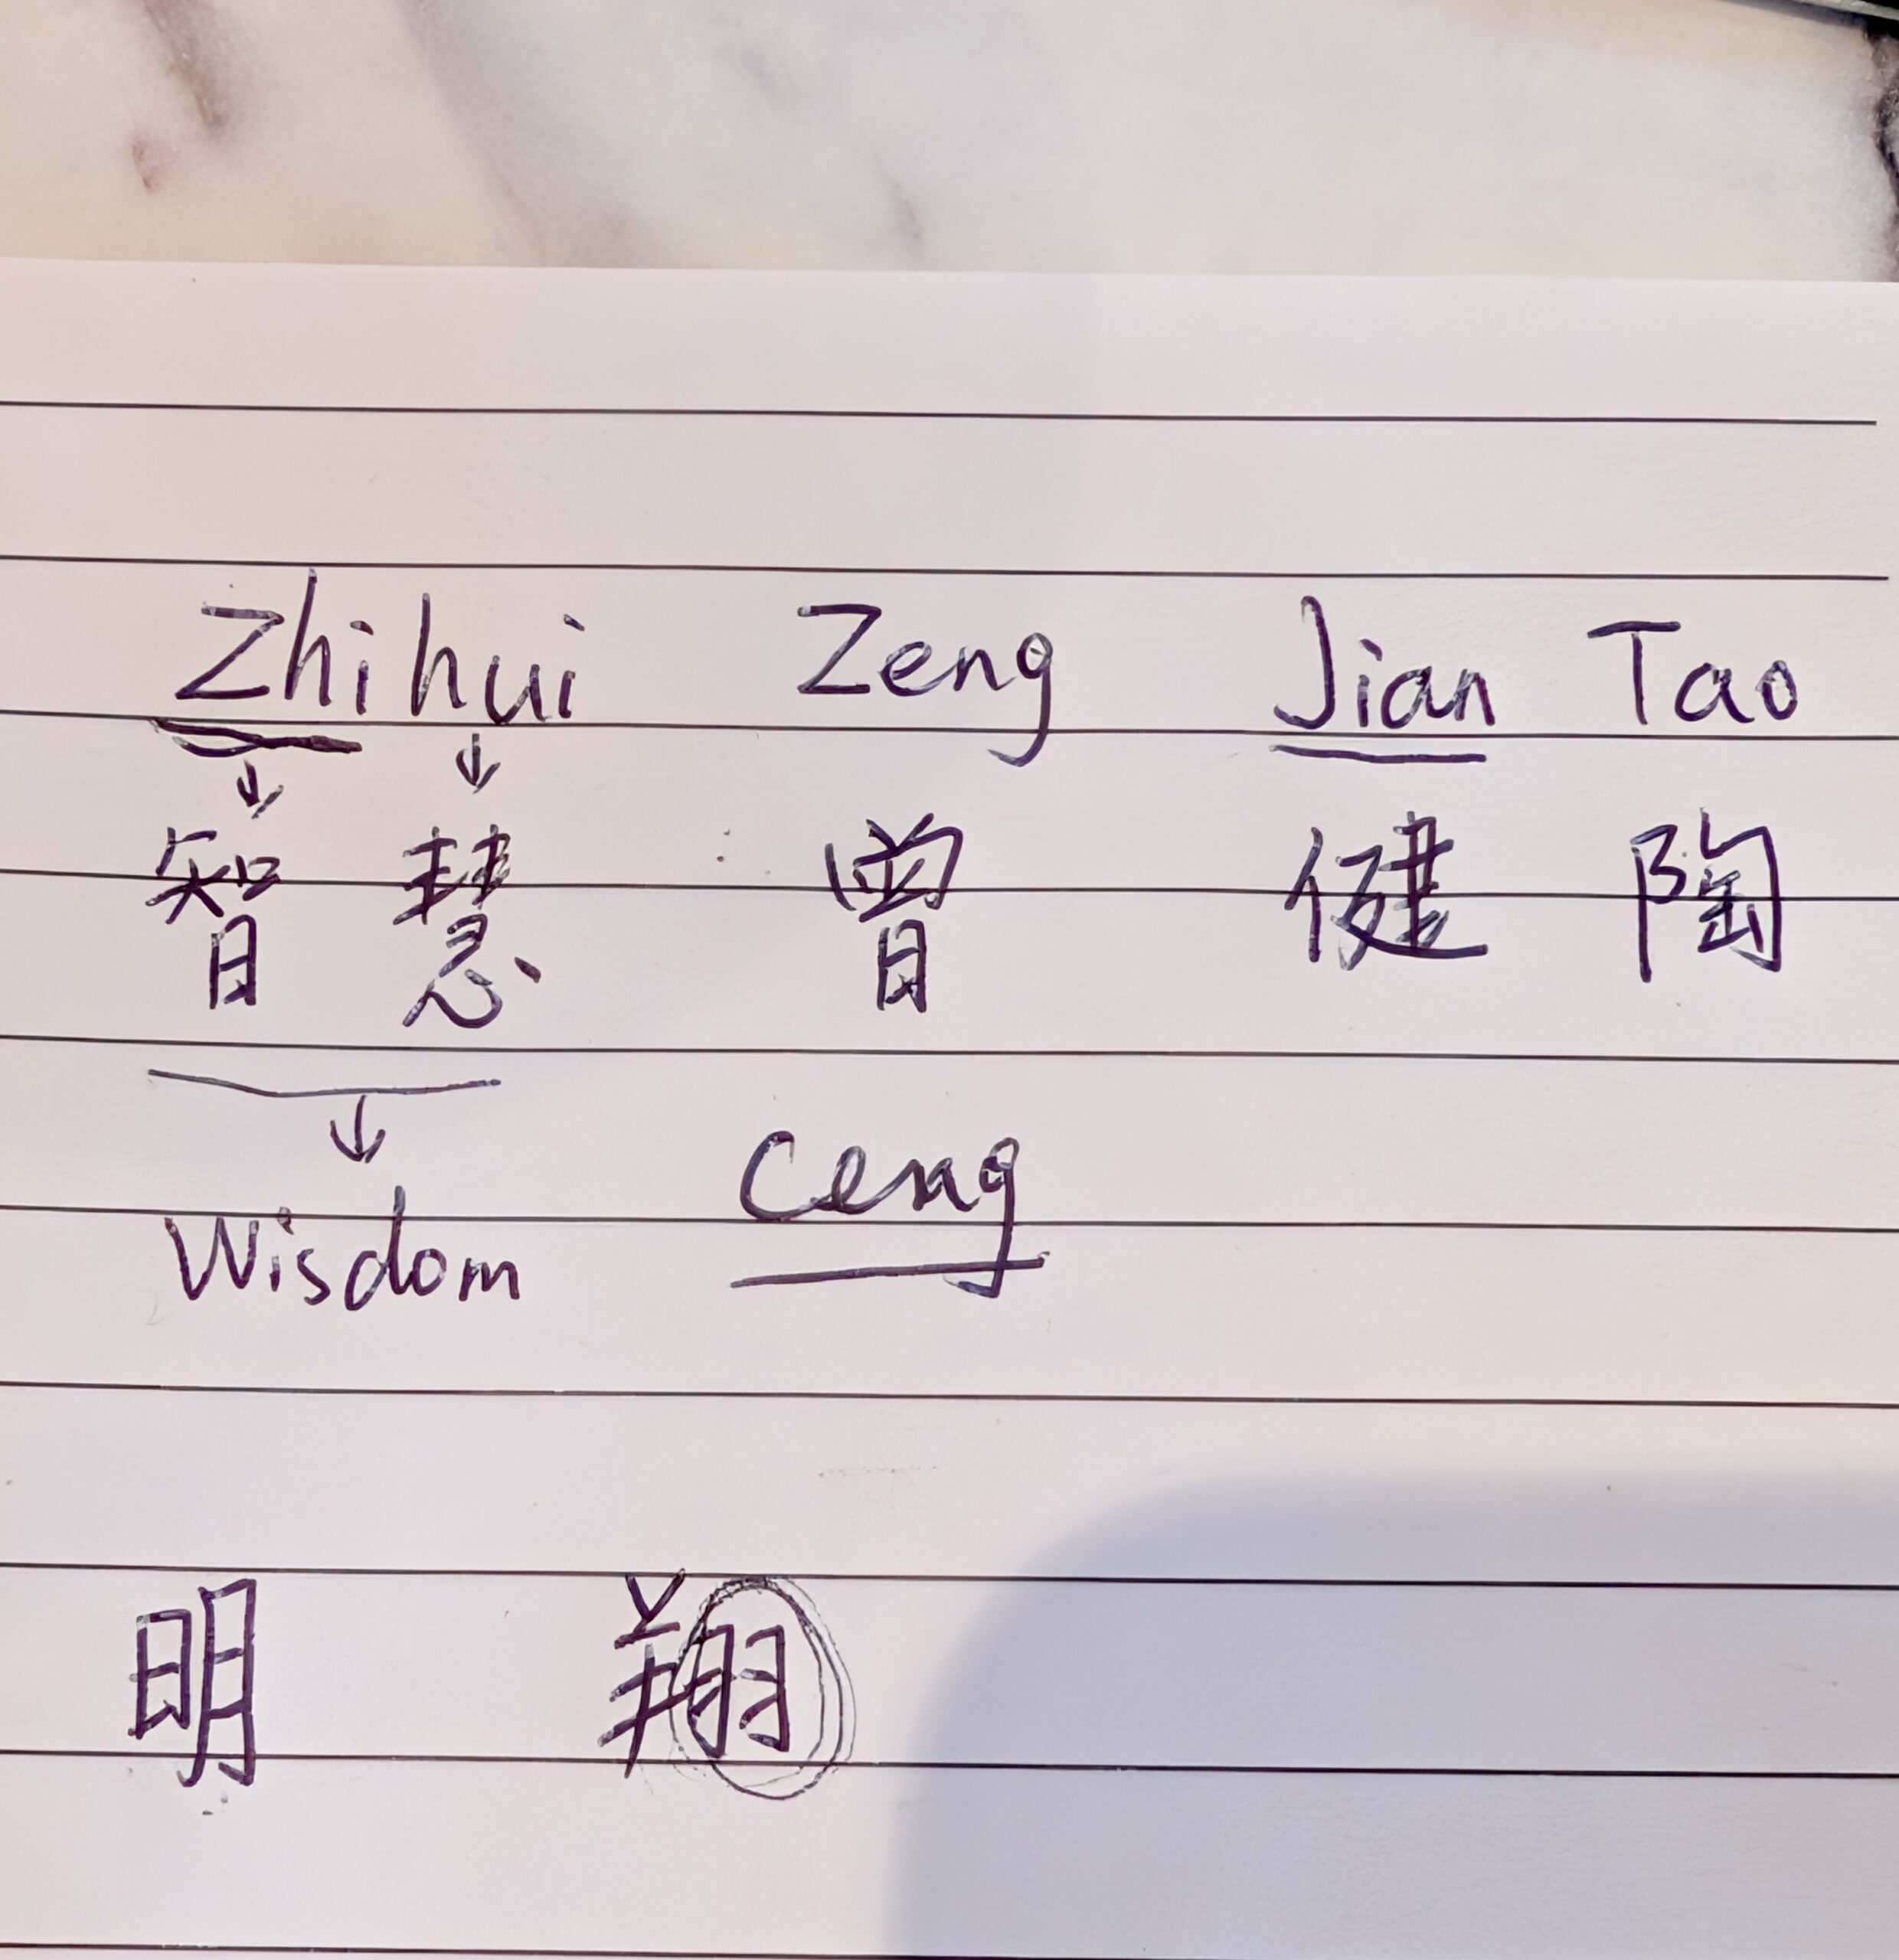 Zhihui Zeng Jian Tao
智慧 曾 健 陶
Wisdom Ceng
明 翔